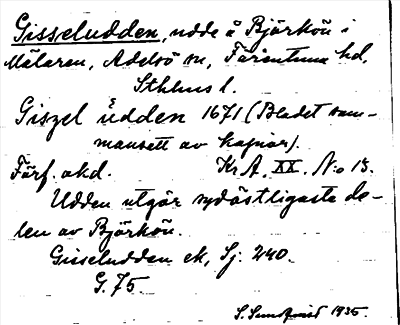 Gisseludden, udde å Björkön i
Mälaren, Adelsö sn, Färentuna hd,
Sthlms l.
Giszel udden 1671 (Bladet sam-
mansatt av kopior).
Förf. okd. Kr A. XX. N:o 15.
Udden utgör sydöstligaste de-
len av Björkön.
Gisseludden ek, Sj. 240.
G. 75.
S. Sundqvist 1935.